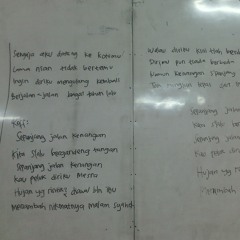 Sengaja aku datang ke kotamu
Lama nian tidak bertemu
Ingin diriku mengulang kembali
Berjalan-jalan bagai tahun lalu
Reff:
Sepanjang jalan kenangan
Kita slalu bergandeng tangan
Sepanjang jalan kenangan
Kau peluk diriku mesra
Hujan yg rintik² diawal bln itu
Menambah nikmatnya malam syahdu
Walau diriku kini tlah
Dirimu pun tiada berbeda
Namun kenangan sepanjang
Tak mungkin lepas dari
Sepanjang jalan
Kita slalu
Sepanjang jalan
Kau peluk
Hujan yg
Menambah